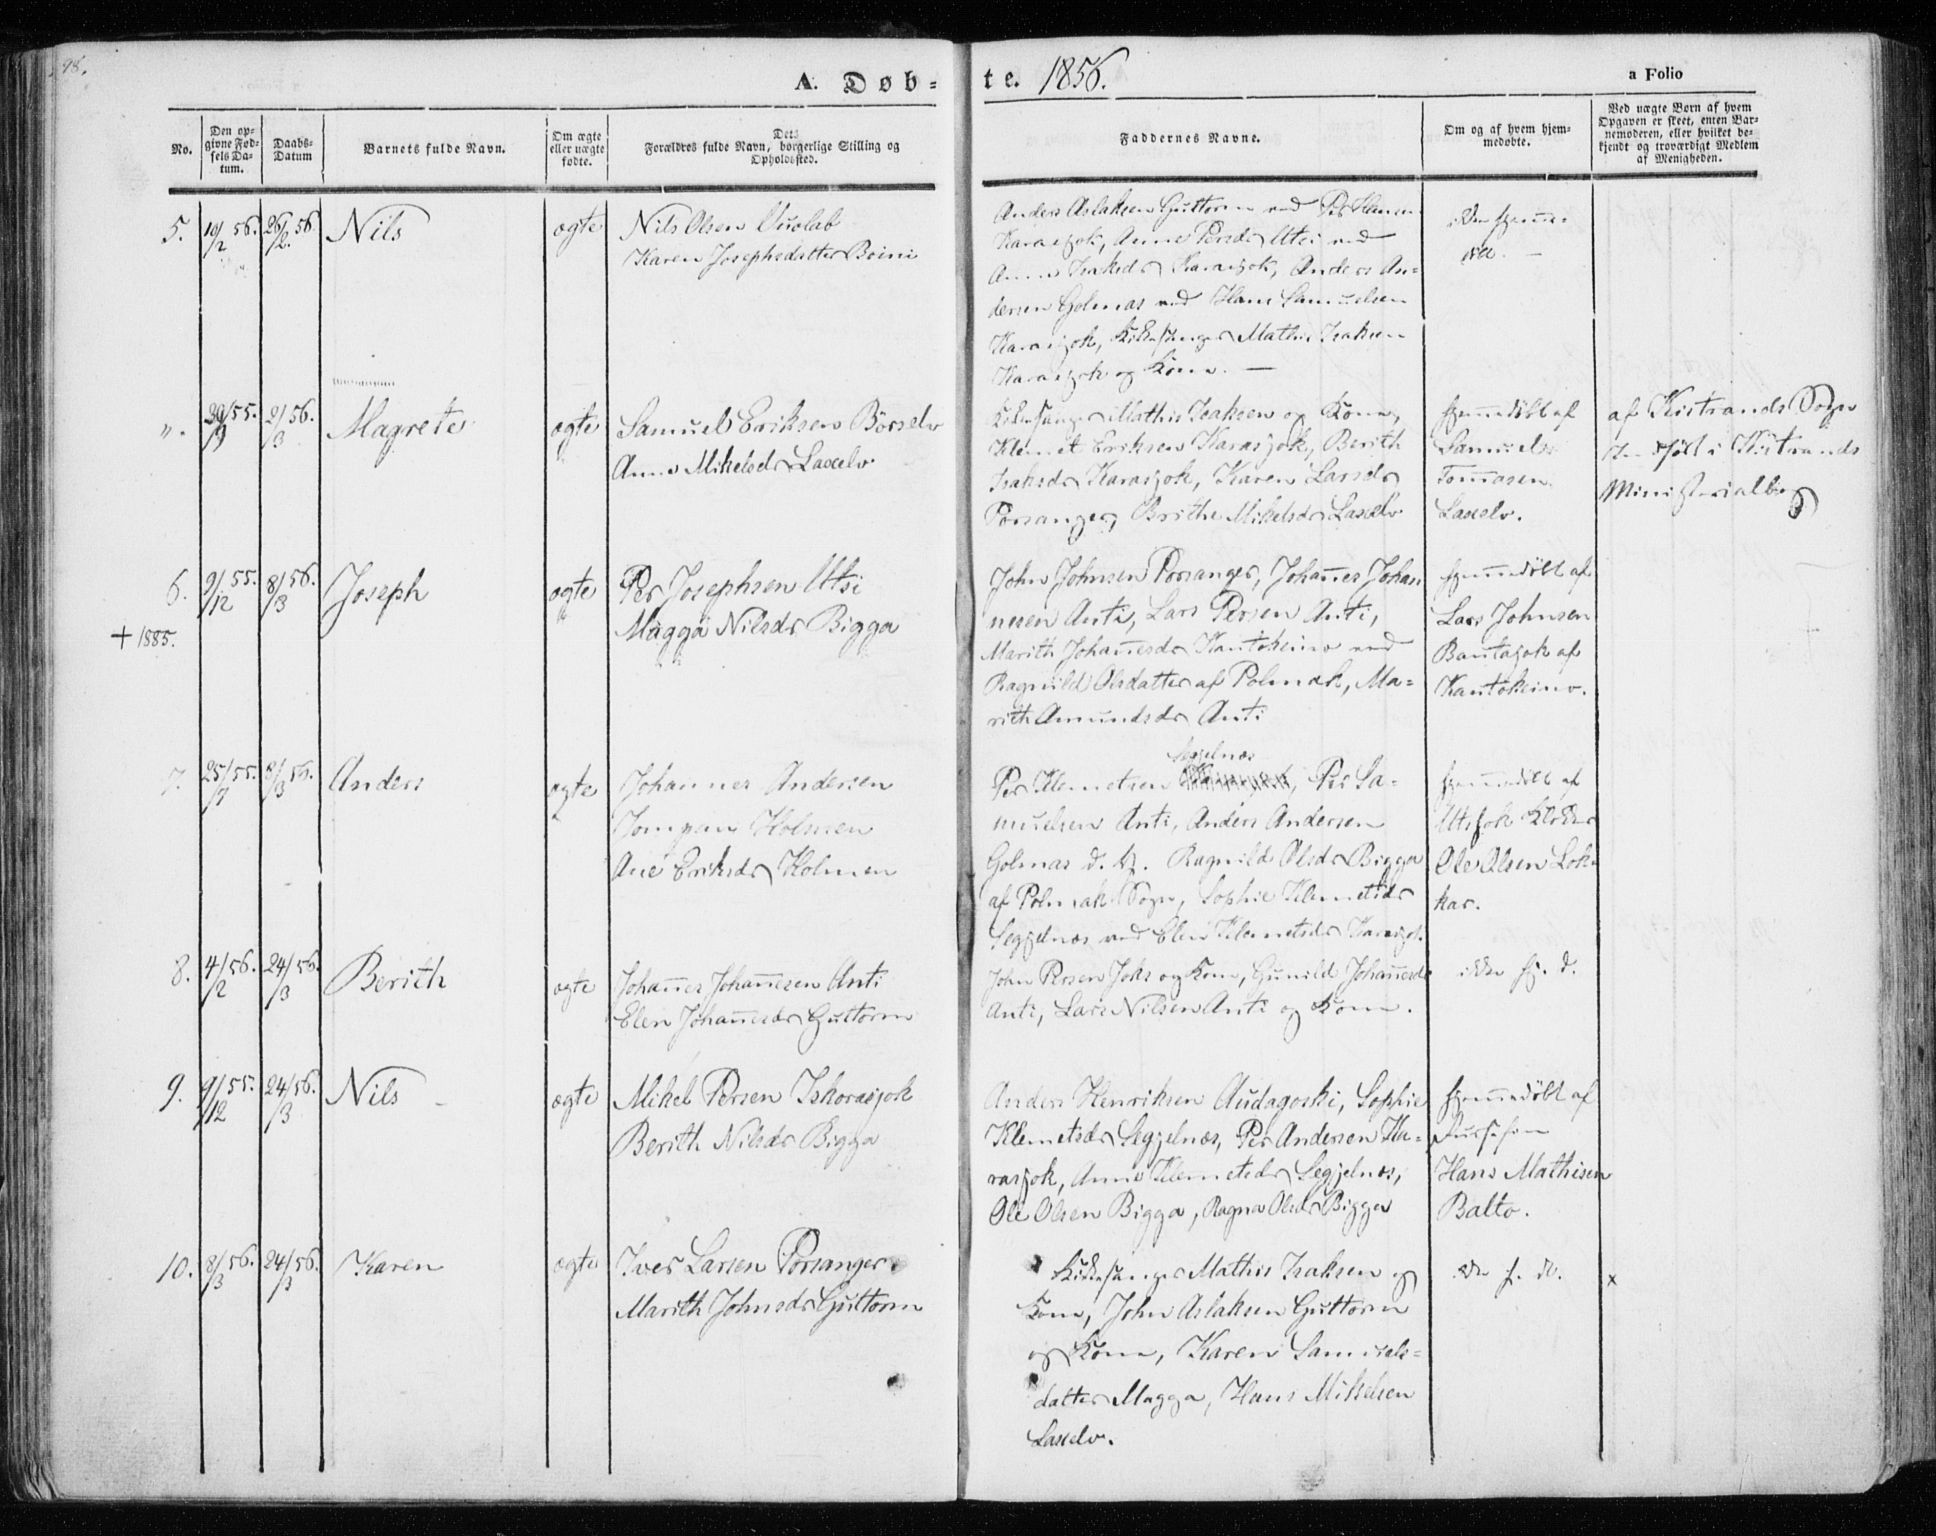 98.
A. Døb=
te. 1856.
a Folio
No.
Den op=
givne Fød=
sels Da=
tum.
Daabs=
Datum
Barnets fulde Navn.
Om ægte
eller uægte
fødte.
Dets
Forældres fulde Navn, borgerlige Stilling og
Opholdssted.
Faddernes Navne.
Om og af hvem hjem=
medøbte.
Ved uægte Børn af hvem
Opgaven er skeet, enten Bar=
nemoderen, eller hvilket be=
kjendt og troværdigt Medlem
af Menigheden.
5. 10/2 56. 26/2 56. Nils ægte
Nils Olsen Vuolab
Karen Josephsdatter Boini
Anders Aslaksen Guttorm ved Per Hansen
Karasjok, Anne Persdr Utsi ved
Anne Isaksdr Karasjok, Anders An=
dersen Golmas ved Hans Samuelsen
Karasjok, Kirkesanger Mathis Isaksen
Karasjok og Kone. —
ikke hjemme=
døbt. —
". 29/9 55. 2/3 56. Magrete ægte
Samuel Eriksen Börselv
Anne Mikelsdr Laxelv
Kirkesanger Mathis Isaksen og Kone,
Klemet Eriksen Karasjok, Berith
Isaksdr Karasjok, Karen Larsdr
Porsanger, Brithe Mikelsdr Laxelv
hjemmedöbt af
Samuel
Tomasen
Laxelv.
af Kistrands Sogn
i Kistrands
Ministerialbog
6. 9/12 55. 8/3 56. Joseph ægte
+ 1885.
Per Josephsen Utsi
Magga Nilsdr Bigga
John Johnsen Porsanger, Johañes Johan
nesen Anti, Lars Persen Anti,
Marith Johañesdr Kautokeino ved
Ragnild Olsdatter af Polmak, Ma=
rith Amundsdr Anti
hjemmedöbt af
Lars Johnsen
Bautajok af
Kautokeino.
7. 25/7 55. 8/3 56. Anders ægte
Johannes Andersen
Jompan Holmen
Ane Eriksdr Holmen
Segjelnæs
Per Klemetsen Karasjok, Per Sa=
muelsen Anti, Anders Andersen
Golmas d. y. Ragnild Olsdr Bigga
af Polmak Sogn, Sophie Klemetsdr
Segjelnæs ved Elen Klemetsdr Karasjok.
hjemmedöbt af
Utsjok Klokker
Ole Olsen Lok=
kar.
8. 4/2 56. 24/3 56. Berith ægte
Johañes Johañesen Anti
Elen Johañesdr Guttorm
John Persen Joks og Kone, Gunild Johañesdr
Anti, Lars Nilsen Anti og Kone.
ikke hj. d.
9. 9/12 55. 24/3 56. Nils ægte
Mikel Persen Iskorasjok
Berith Nilsdr Bigga
Anders Henriksen Audagoski, Sophie
Klemetsdr Segjelnæs, Per Andersen Ka=
rasjok, Anne Klemetsdr Segjelnæs,
Ole Olsen Bigga, Ragna Olsdr Bigga
hjemmedöbt af
Hans Mathisen
Balto.
10. 8/3 56. 24/3 56. Karen ægte
Iver Larsen Porsanger
Marith Johnsdr Guttorm
Kirkesanger Mathis Isaksen og
Kone, John Aslaksen Guttorm
og Kone, Karen Samuels=
datter Magga, Hans Mikelsen
Laxelv.
ikke h. d.
x